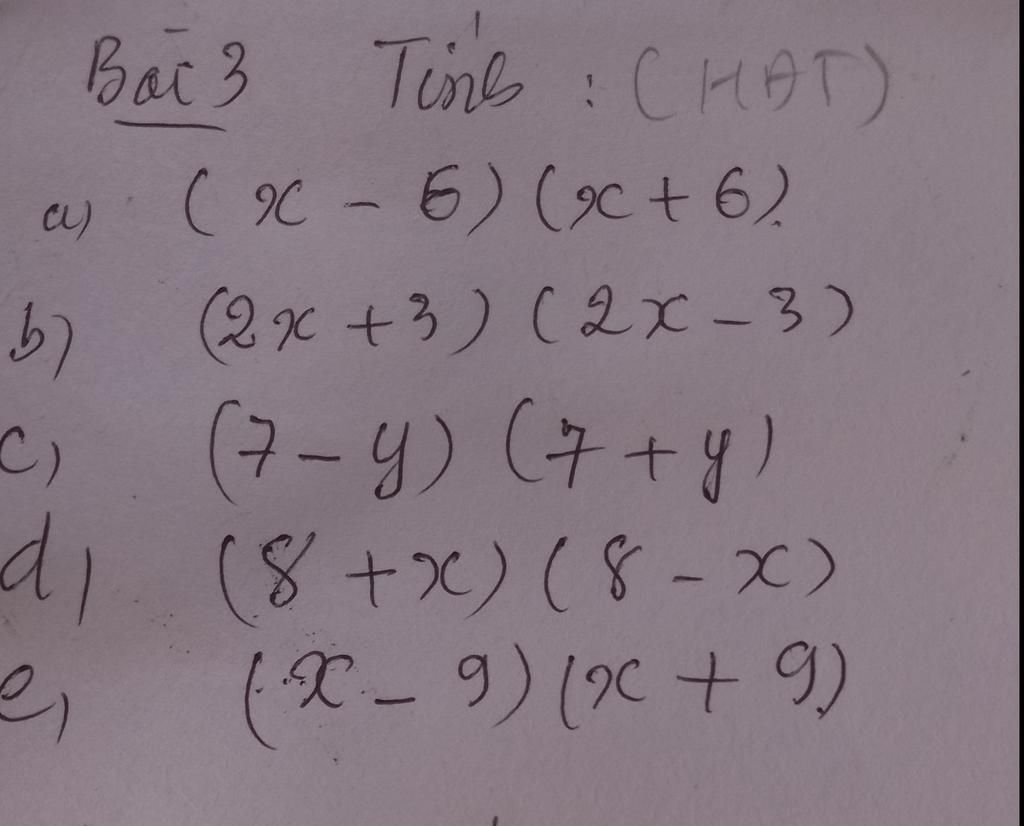 Bài 3 Tính : (HĐT)
a) (x - 6) (x + 6).
b) (2x + 3) (2x - 3)
c) (7 - y) (7 + y)
d) (8 + x) (8 - x)
e) (x - 9) (x + 9)